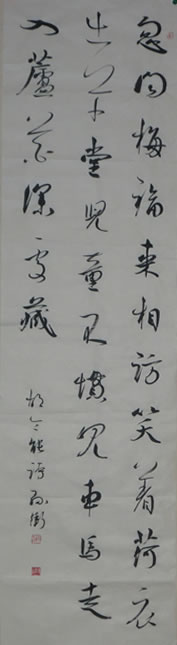 忽聞梅福來相訪笑着荷衣
出草堂兒童不慣見車馬走
入蘆花深處藏
胡令能詩